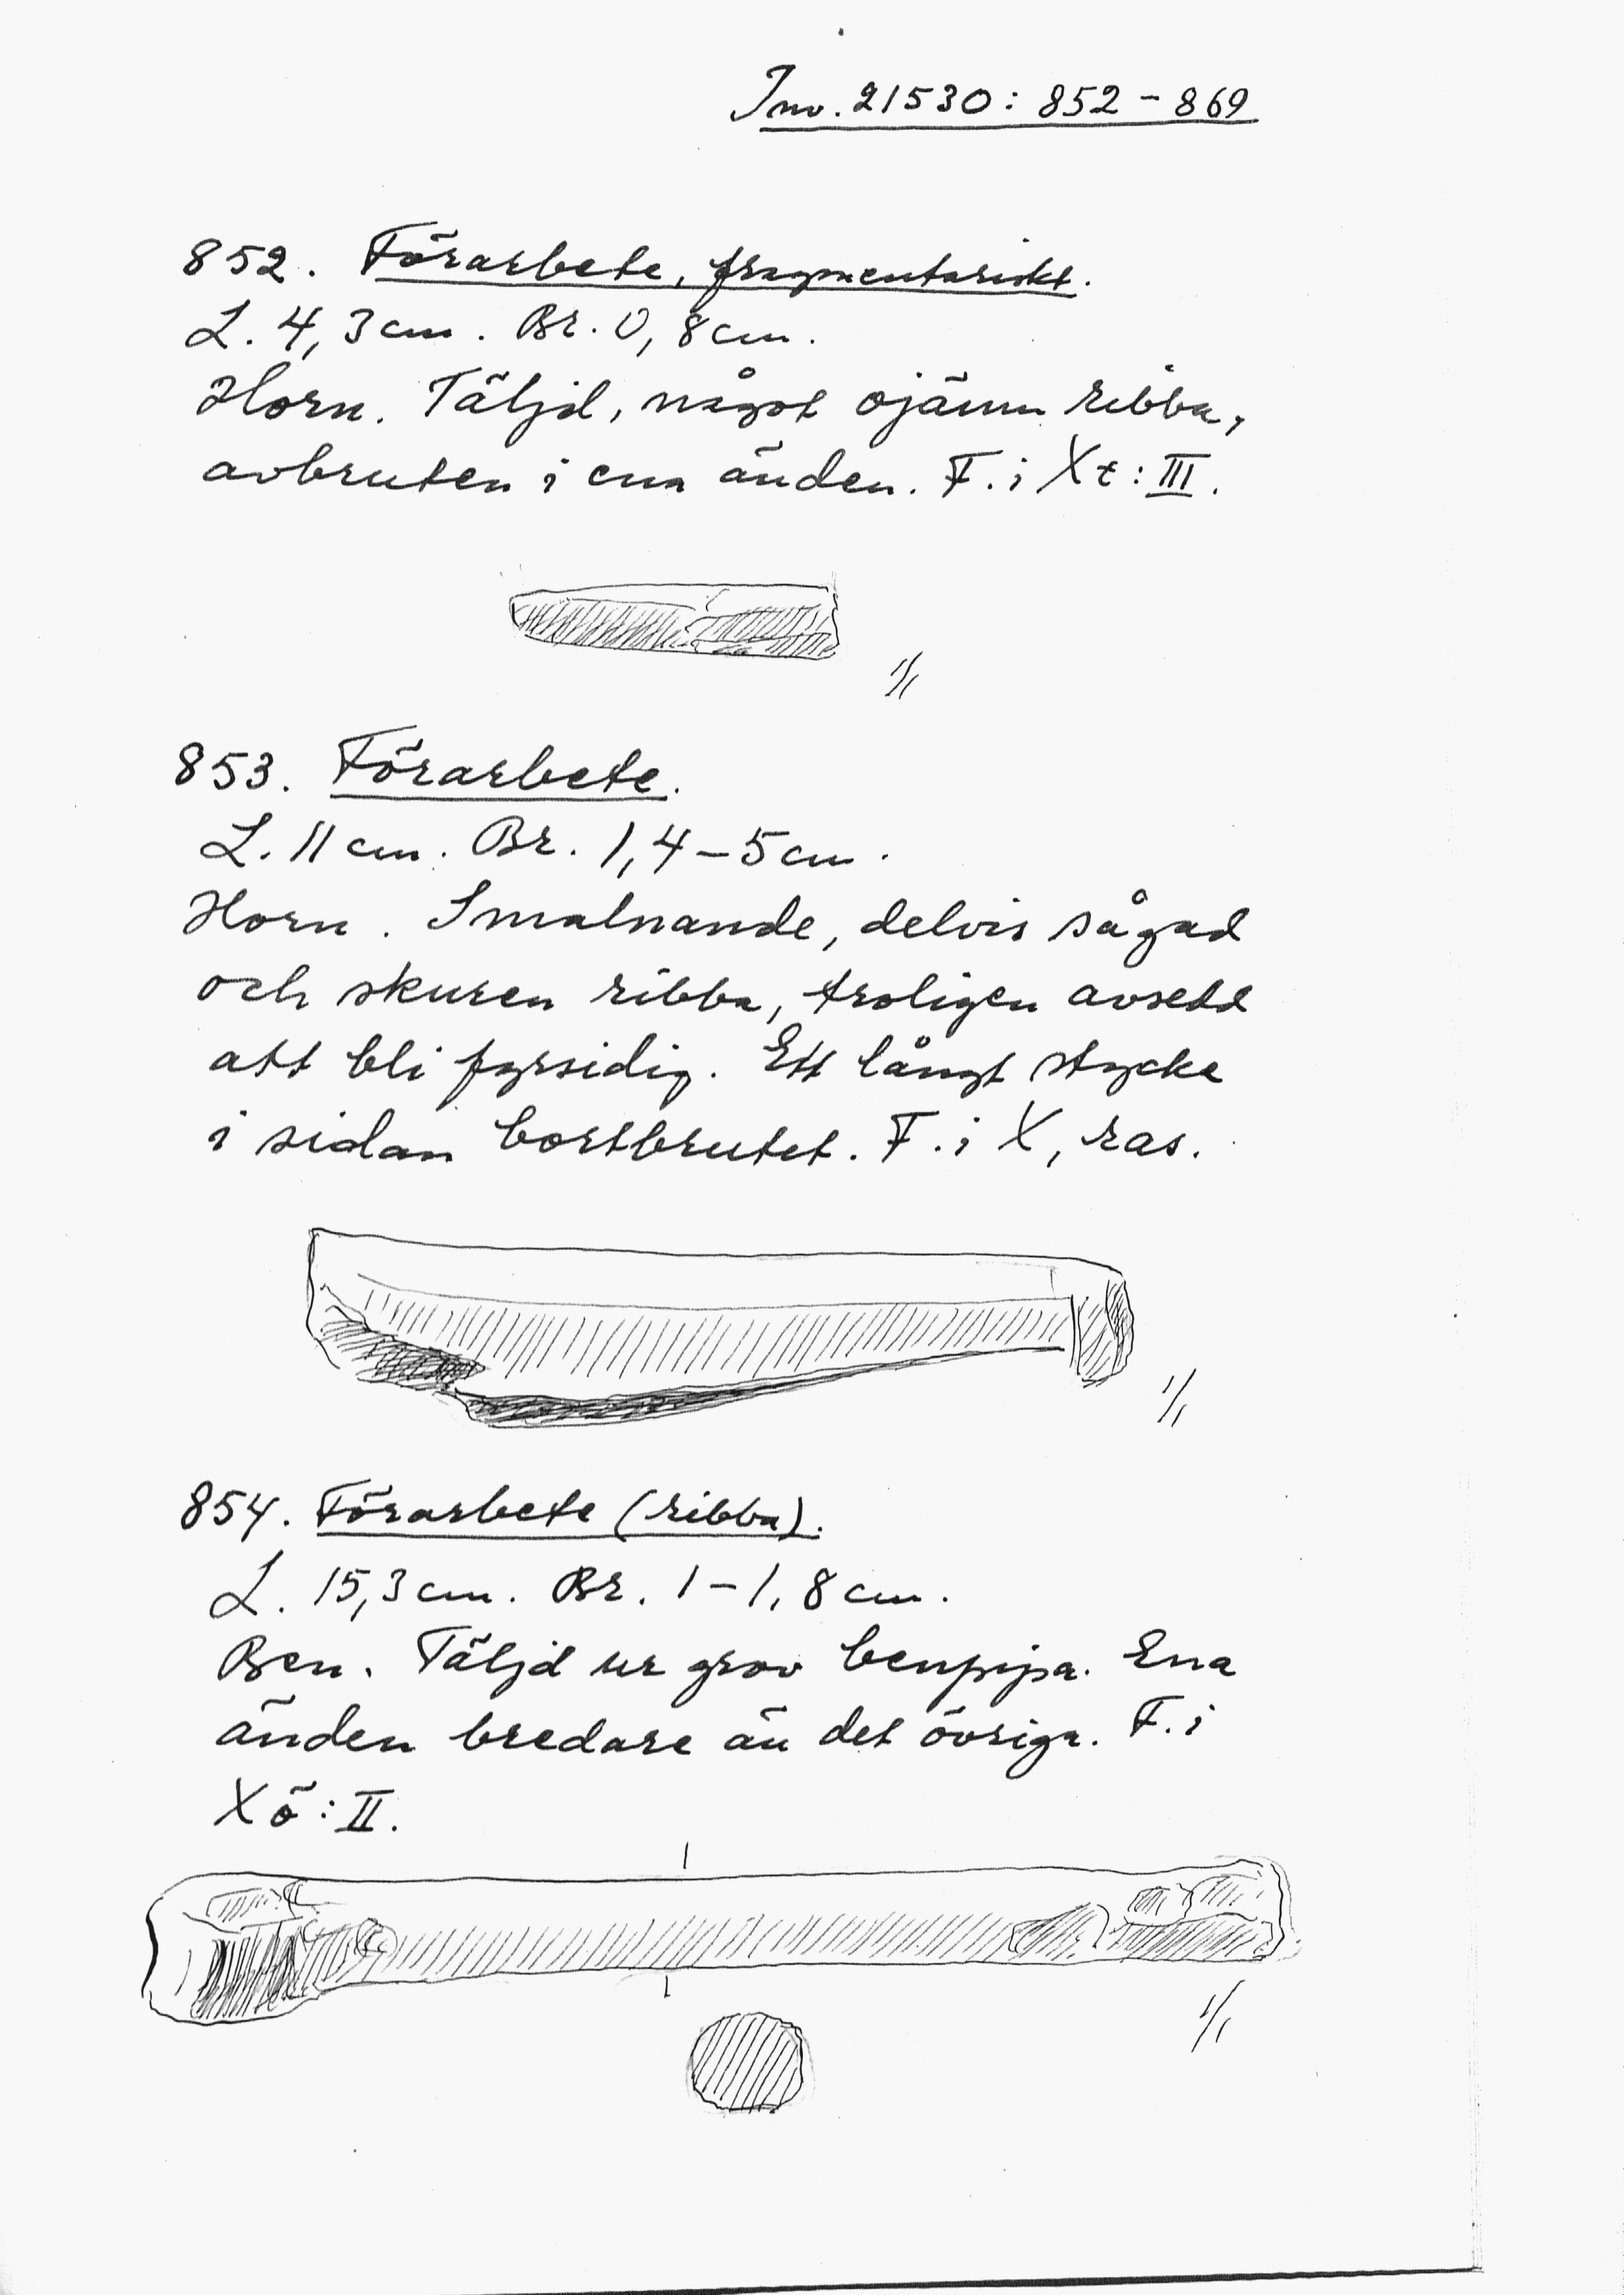 Inv. 21530: 852 - 869
852. Förarbete, fragmentariskt.
L. 4,3 cm. Br. 0,8 cm.
Horn. Täljd, något ojämn ribba,
avbruten i ena änden. F. i Xt: III.
1/1
853. Förarbete.
L. 11 cm. Br. 1,4 - 5 cm.
Horn. Smalnande, delvis sågad
och skuren ribba, troligen avsedd
att bli fyrsidig. Ett långt stycke
i sidan bortbrutet. F. i X, ras.
1/1
854. Förarbete (ribba).
L. 15,3 cm. Br. 1 - 1,8 cm.
Ben. Täljd ur grov benpipa. Ena
änden bredare än det övriga. F. i
Xö: II.
1/1